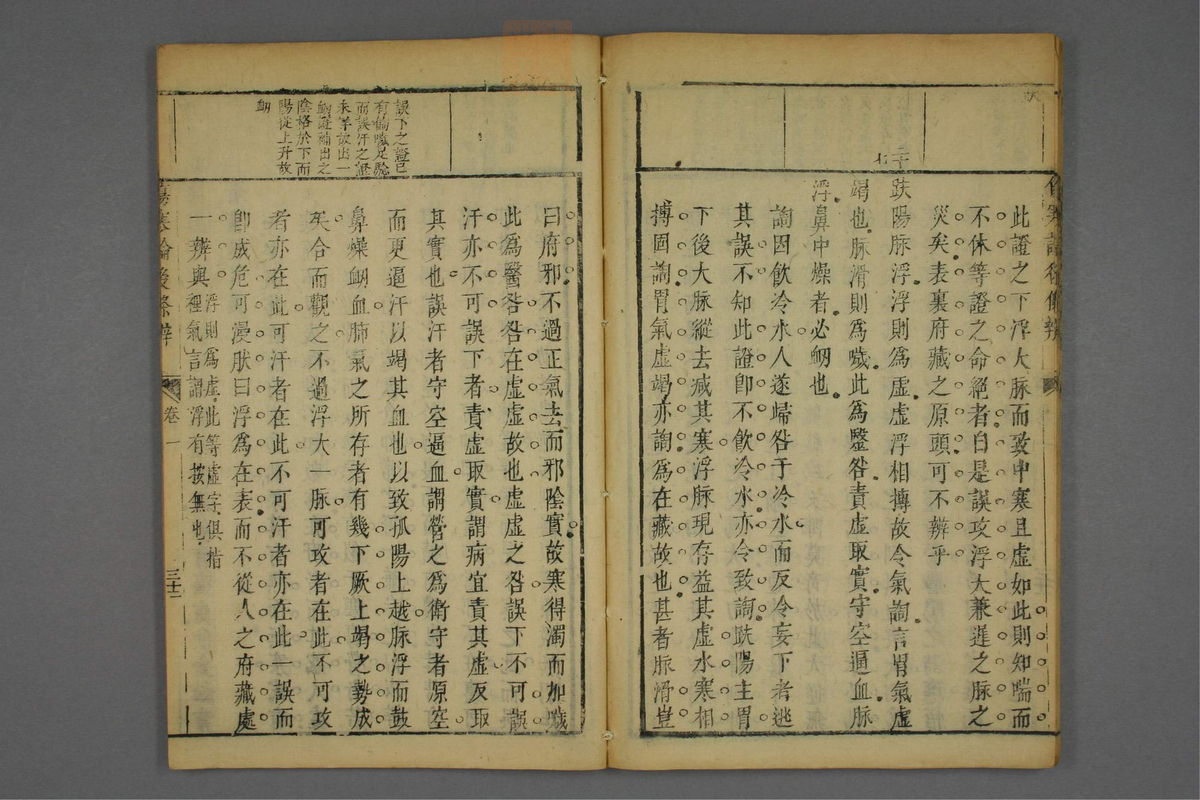 此證之下浮大脉而致中寒且虛如此則知喘而
不休等證之命絕者曰是誤攻浮大兼遲之脉之
災矣表裏府藏之原頭可不辨乎
趺陽脉浮浮則為虛虛浮相搏故令氣䭇言胃氣虛
竭也脉滑則為噦此為醫咎責虛取實守空逼血脉
浮鼻中燥者必衂也
䭇因飲冷水人遂歸咎于冷水而反令妄下者逃
其誤不知此證即不飲冷水亦令致䭇趺陽主胃
下後大脉縱去減其寒浮脉現存益其虛水寒相
搏固䭇胃氣虛竭亦䭇為在藏故也甚者脉滑豈
誤下之證已
有偏噦足驗
而誤汗之證
未詳故出一
衂證補出之
陰格於下而
陽從上升故
衂
曰府邪不過正氣去而邪陰實故寒得濁而加噦
此為醫咎咎在虛虛故也虛虛之咎誤下不可誤
汗亦不可誤下者責虛取實謂病宜責其虛反取
其實也誤汗者守空逼血謂營之為衛守者原空
而更逼汗以竭其血也以致孤陽上越脉浮而鼓
鼻燥衂血肺氣之所存者有幾下厥上竭之勢成
矣合而觀之不過浮大一脉可攻者在此不可攻
者亦在此可汗者在此不可汗者亦在此一誤而
即成危可漫肤曰浮為在表而不從人之府藏處
一辨與浮則為虛此等虛字俱指
裡氣言謂浮有按無也
傷寒論後條辨
卷一
三十二